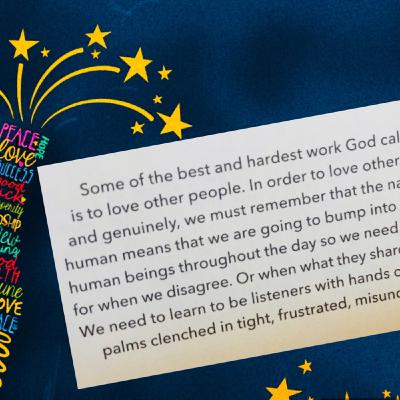 PEACE
HOPE
love
SUCCESS
LOVE
Some of the best and hardest work God cal
is to love other people. In order to love other
and genuinely, we must remember that the na
human means that we are going to bump into
human beings throughout the day so we need
for when we disagree. Or when what they shar
We need to learn to be listeners with hands o
palms clenched in tight, frustrated, misun